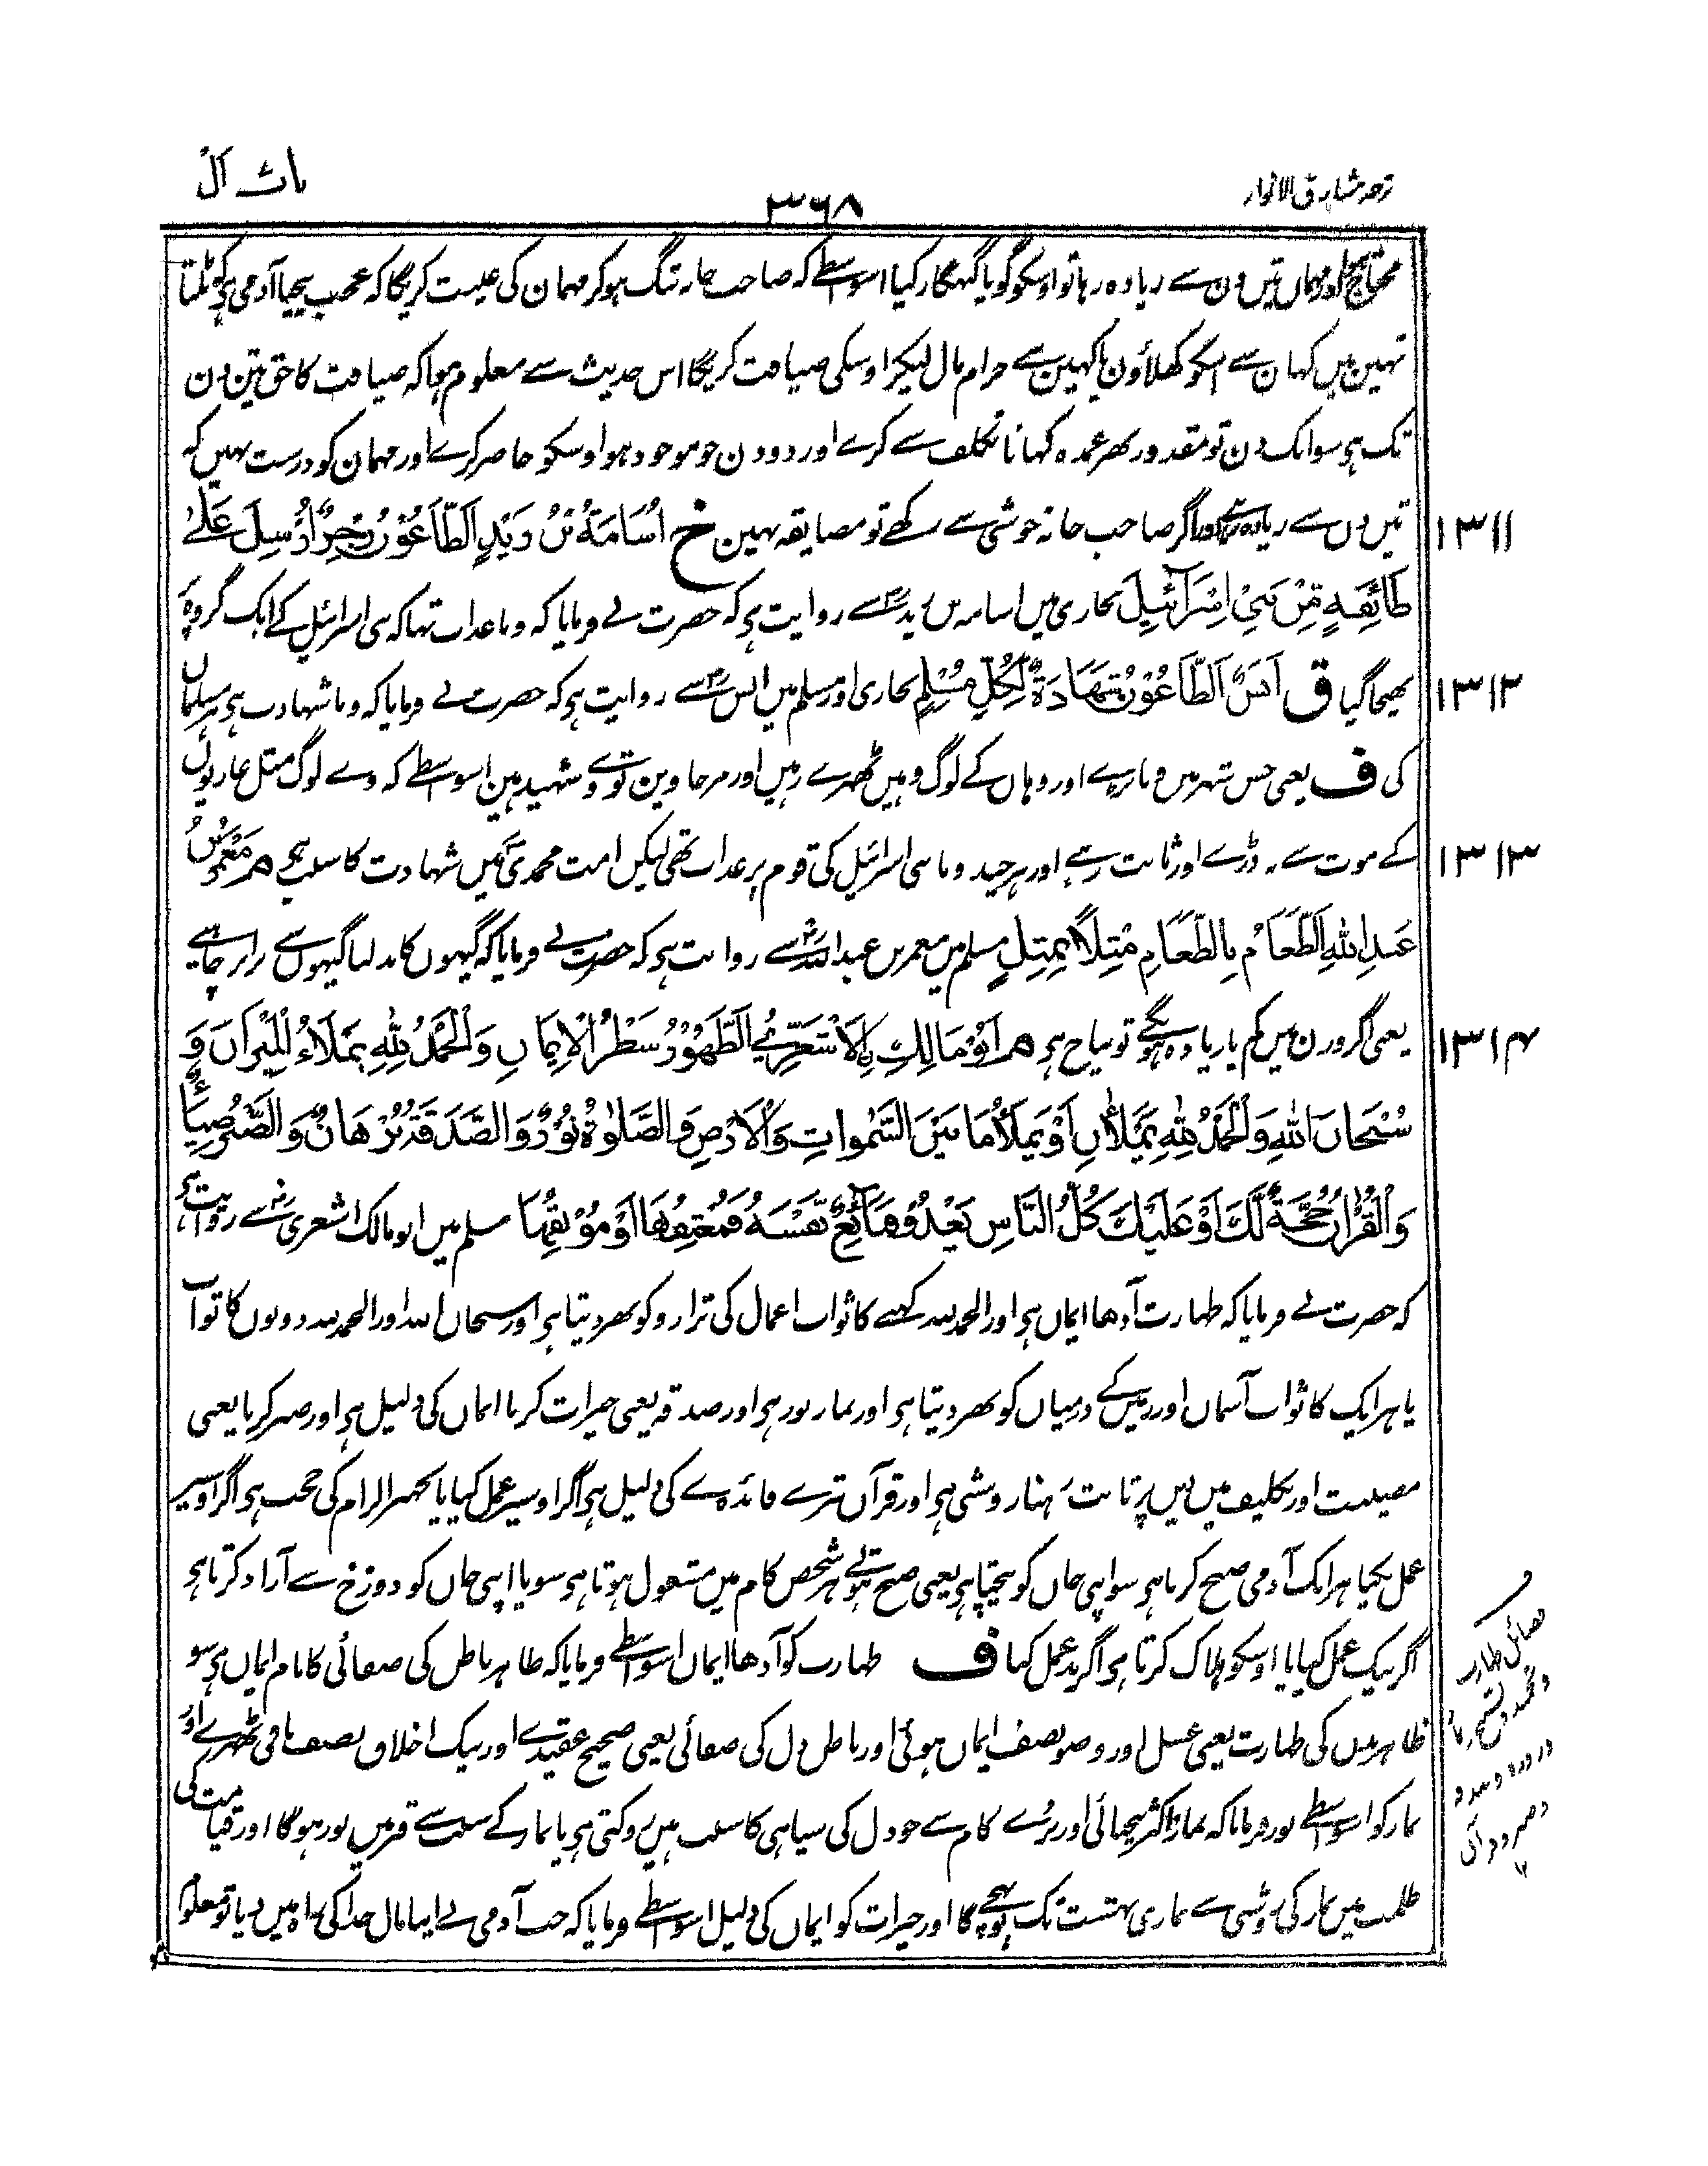 ترجمہ مشارق الانوار
۳۶۸
باب ال
محتاج ہی اور مہمان تین دن سے زیادہ رہا تو اوسکو گویا گنہگار کیا اسواسطے کہ صاحب خانہ تنگ ہوکر مہمان کی غیبت کریگا کہ عجب بیحیا آدمی ہی کہ ٹلتا
نہین مین کہان سے اسکو کھلاؤن یا کہین سے حرام مال لیکر اوسکی ضیافت کریگا اس حدیث سے معلوم ہوا کہ ضیافت کا حق تین دن
تک ہی سو ایک دن تو مقدور بھر عمدہ کھانا تکلف سے کرے اور دو دن جو موجود ہو اوسکو حاضر کرے اور مہمان کو درست نہین کہ
تین دن سے زیادہ رہے اور اگر صاحب خانہ خوشی سے رکھے تو مضایقہ نہین خ اُسَامَةُ بْنُ زَيْدٍ اَلطَّاعُوْنُ رِجْزٌ اُرْسِلَ عَلٰى
۱۳۱۱
طَائِفَةٍ مِّنْ بَنِيْ اِسْرَآئِيْلَ بخاری مین اسامہ بن زیدؓ سے روایت ہی کہ حضرت نے فرمایا کہ وبا عذاب تھا کہ بنی اسرائیل کے ایک گروہ پر
بھیجا گیا ق اَنَسٌ اَلطَّاعُوْنُ شَهَادَةٌ لِّكُلِّ مُسْلِمٍ بخاری اور مسلم مین انسؓ سے روایت ہی کہ حضرت نے فرمایا کہ وبا شہادت ہی ہر مسلمان
۱۳۱۲
کی ف یعنی جس شہر مین وبا پڑے اور وہان کے لوگ وہین ٹھہرے رہین اور مرجاوین تو وے شہید ہین اسواسطے کہ وے لوگ مثل غازیون
کے موت سے نہ ڈرے اور ثابت رہے اور ہرچند وبا بنی اسرائیل کی قوم پر عذاب تھی لیکن امت محمدی مین شہادت کا سبب ہی م مَعْمَرُ بْنُ
۱۳۱۳
عَبْدِ اللهِ اَلطَّعَامُ بِالطَّعَامِ مِثْلًا بِمِثْلٍ مسلم مین معمر بن عبداللہؓ سے روایت ہی کہ حضرت نے فرمایا کہ گیہون کا بدلنا گیہون سے برابر چاہیے
یعنی اگر وزن مین کم یا زیادہ ہونگے تو بیاج ہی م اَبُوْ مَالِكِ ۨالْاَشْعَرِيُّ اَلطُّهُوْرُ شَطْرُ الْاِيْمَانِ وَالْحَمْدُ لِلّٰهِ يَمْلَاءُ الْمِيْزَانَ وَ
۱۳۱۴
سُبْحَانَ اللهِ وَالْحَمْدُ لِلّٰهِ يَمْلَاٰنِ اَوْ يَمْلَأُ مَا بَيْنَ السَّمٰوَاتِ وَالْاَرْضِ وَالصَّلٰوةُ نُوْرٌ وَّالصَّدَقَةُ بُرْهَانٌ وَّالصَّبْرُ ضِيَاءٌ
وَالْقُرْاٰنُ حُجَّةٌ لَّكَ اَوْ عَلَيْكَ كُلُّ النَّاسِ يَغْدُوْ فَبَآئِعٌ نَّفْسَهٗ فَمُعْتِقُهَا اَوْ مُوْبِقُهَا مسلم مین ابو مالک اشعریؓ سے روایت ہی
کہ حضرت نے فرمایا کہ طہارت آدھا ایمان ہی اور الحمدللہ کہنے کا ثواب اعمال کی ترازو کو بھر دیتا ہی اور سبحان اللہ اور الحمدللہ دونون کا ثواب
یا ہر ایک کا ثواب آسمان اور زمین کے درمیان کو بھر دیتا ہی اور نماز نور ہی اور صدقہ یعنی خیرات کرنا ایمان کی دلیل ہی اور صبر کرنا یعنی
مصیبت اور تکلیف مین دین پر ثابت رہنا روشنی ہی اور قرآن تیرے فائدہ کی دلیل ہی اگر اوسپر عمل کیا یا تجھپر الزام کی حجت ہی اگر اوسپر
عمل نکیا ہر ایک آدمی صبح کرتا ہی سو اپنی جان کو بیچتا ہی یعنی صبح ہوتے ہر شخص کام مین مشغول ہوتا ہی سو یا اپنی جان کو دوزخ سے آزاد کرتا ہی
اگر نیک عمل کیا یا اوسکو ہلاک کرتا ہی اگر بد عمل کیا ف طہارت کو آدھا ایمان اسواسطے فرمایا کہ ظاہر باطن کی صفائی کا نام ایمان ہی سو
ظاہر بدن کی طہارت یعنی غسل اور وضو نصف ایمان ہوئی اور باطن دل کی صفائی یعنی صحیح عقیدے اور نیک اخلاق نصف باقی ٹھہرے اور
نماز کو اسواسطے نور فرمایا کہ نماز اکثر بیحیائی اور برُے کام سے جو دل کی سیاہی کا سبب ہین روکتی ہی یا نماز کے سبب سے قبر مین نور ہوگا اور قیامت کی
ظلمت مین نماز کی روشنی سے نمازی بہشت تک پہونچیگا اور خیرات کو ایمان کی دلیل اسواسطے فرمایا کہ جب آدمی نے اپنا مال خدا کی راہ مین دیا تو معلوم
ف
فضائل طہارت
وتحمید وتسبیح ونماز
وصبر وقرآن
۱۲